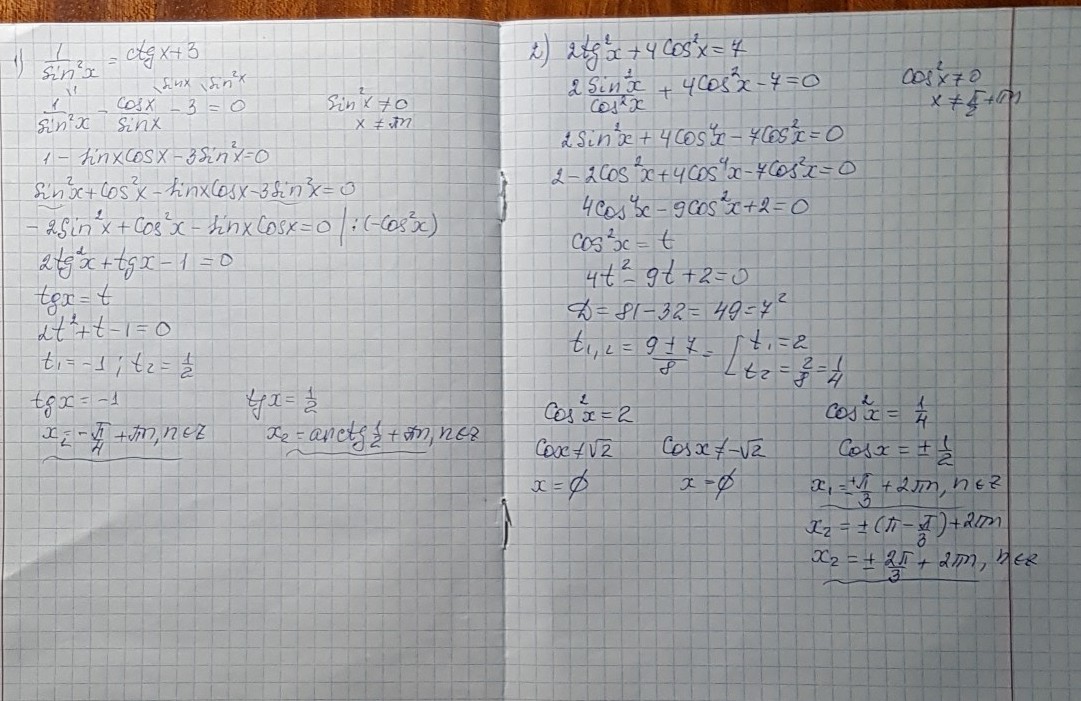 1) 1/sin²x = ctgx+3
\sinx \sin²x
1/sin²x - cosx/sinx - 3 = 0
sin²x ≠ 0
x ≠ πn
1 - sinxcosx - 3sin²x=0
sin²x+cos²x - sinxcosx-3sin²x=0
-2sin²x+cos²x - sinxcosx=0 |:(-cos²x)
2tg²x+tgx-1=0
tgx=t
2t²+t-1=0
t₁=-1; t₂=1/2
tgx=-1
tgx=1/2
x=-π/4+πn, n∈z
x₂=arctg1/2+πn, n∈z
2) 2tg²x+4cos²x=7
2sin²x/cos²x + 4cos²x-7=0
cos²x≠0
x≠π/2+πn
2sin²x+4cos⁴x-7cos²x=0
2-2cos²x+4cos⁴x-7cos²x=0
4cos⁴x-9cos²x+2=0
cos²x=t
4t²-9t+2=0
D=81-32=49=7²
t₁,₂ = 9±7/8 = [t₁=2
t₂=2/8=1/4
cos²x=2
cos²x=1/4
cox≠√2
cosx≠-√2
cosx=±1/2
x=∅
x=∅
x₁=±π/3+2πn, n∈z
x₂=±(π-π/3)+2πn
x₂=±2π/3+2πn, n∈z